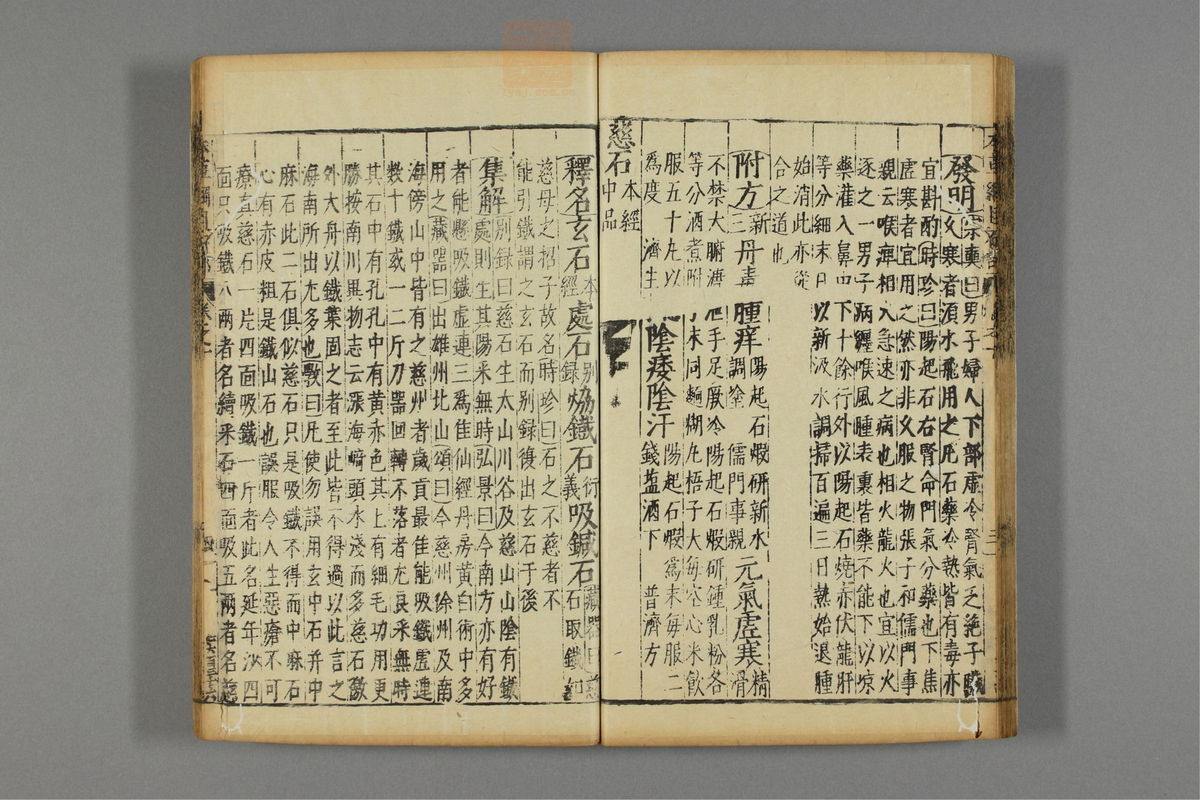 發明宗奭曰男子婦人下部虛冷腎氣乏絶子
久寒者須水飛用之凡石藥冷熱皆有毒亦
宜斟酌時珍曰陽起石右腎命門氣分藥也下焦
虛寒者宜用之然亦非久服之物張子和儒門事
親云喉痺相火急速之病也相火龍火也宜以火
逐之一男子病纏喉風腫表裏皆藥不能下以凉
藥灌入鼻中下十餘行外以陽起石燒赤伏龍肝
等分細末日以新汲水調掃百遍三日熱始退腫
始消此亦從
合之道也
附方新三丹毒腫痒陽起石煅研新水調塗 儒門事親元氣虛寒精滑
不禁大腑溏手足厥冷陽起石煅研鍾乳粉各
等分酒煮附末同麵糊丸梧子大每空心米飲
服五十丸以
爲度 濟生陰痿陰汗陽起石煅爲末每服二錢鹽酒下 普濟方
慈石本經中品
釋名玄石本經處石别録熁鐵石衍義吸鍼石藏器曰慈石取鐵如
慈母之招子故名時珍曰石之不慈者不
能引鐵謂之玄石而别録復出玄石于後
集解别録曰慈石生太山川谷及慈山山陰有鐵
處則生其陽采無時弘景曰今南方亦有好
者能懸吸鐵虛連三爲佳仙經丹房黄白術中多
用之藏器曰出雄州北山頌曰今慈州徐州及南
海傍山中皆有之慈州者歲貢最佳能吸鐵虛連
數十鐵或一二斤刀器回轉不落者尤良采無時
其石中有孔孔中有黄赤色其上有細毛功用更
勝按南川異物志云漲海崎頭水淺而多慈石徼
外大舟以鐵葉固之者至此皆不得過以此言之
海南所出尤多也斆曰凡使勿誤用玄中石并中
麻石此二石俱似慈石只是吸鐵不得而中麻石
心有赤皮粗是鐵山石也誤服令人生惡瘡不可
療真慈石一片四面吸鐵一斤者此名延年沙四
面只吸鐵八兩者名續采石四面吸五兩者名慈